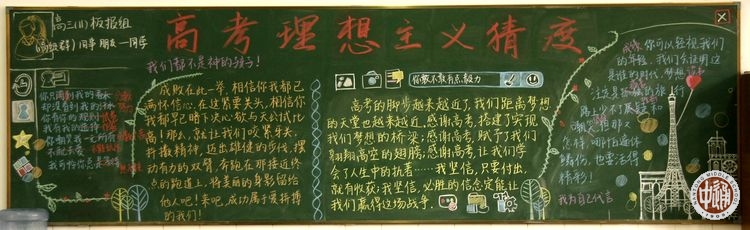 高三(11)板报组
高考理想主义猜度
我们都不是神的孩子!
你只闻到我的香水
却没看到我的汗水
你有你的规则
我有我的选择
你嘲笑我一无所有
我可怜你总是等待
成败在此一举,相信你我都已
满怀信心,在这紧要关头,相信你
我都早已暗下决心欲与天公试比
高!那么,就让我们咬紧牙关,
抖擞精神,迈出雄健的步伐,摆
动有力的双臂,奔跑在那接近终
点的跑道上,将美丽的身影留给
他人吧!来吧,成功属于爱拼搏
的我们!
高考的脚步越来越近了,我们距高梦想
的天堂也越来越近,感谢高考,搭建了实现
我们梦想的桥梁;感谢高考,赋予了我们
翱翔高空的翅膀;感谢高考,让我们学
会了人生中的执着……我坚信,只要付出,
就有收获;我坚信,必胜的信念定能让
我们赢得这场战争。
你可以轻视我们
的年轻,我们会证明这
是谁的时代,梦想
注定是孤独的旅行
路上少不了质疑和
嘲笑,但那又
怎样,哪怕遍体
鳞伤,也要活得
精彩!
我为自己代言
中通